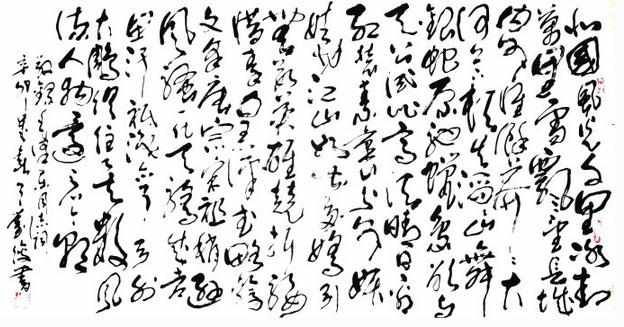 北國風光千里冰封
萬里雪飄望長城
內外惟餘莽莽大
河上下頓失滔滔山舞
銀蛇原馳蠟象欲與
天公試比高須晴日看
紅裝素裹分外妖
嬈江山如此多嬌引
無數英雄競折腰
惜秦皇漢武略輸
文采唐宗宋祖稍遜
風騷一代天驕成吉
思汗祇識彎弓射
大雕俱往矣數風
流人物還看今朝
敬錄毛澤東同志詞
辛卯書